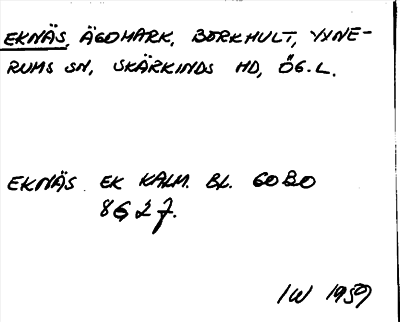 EKNÄS, ÄGOMARK, BORKHULT, YXNE-
RUMS SN, SKÄRKINDS HD, ÖG.L.
EKNÄS EK KALM. BL. 60BO
8G27.
IW 1959